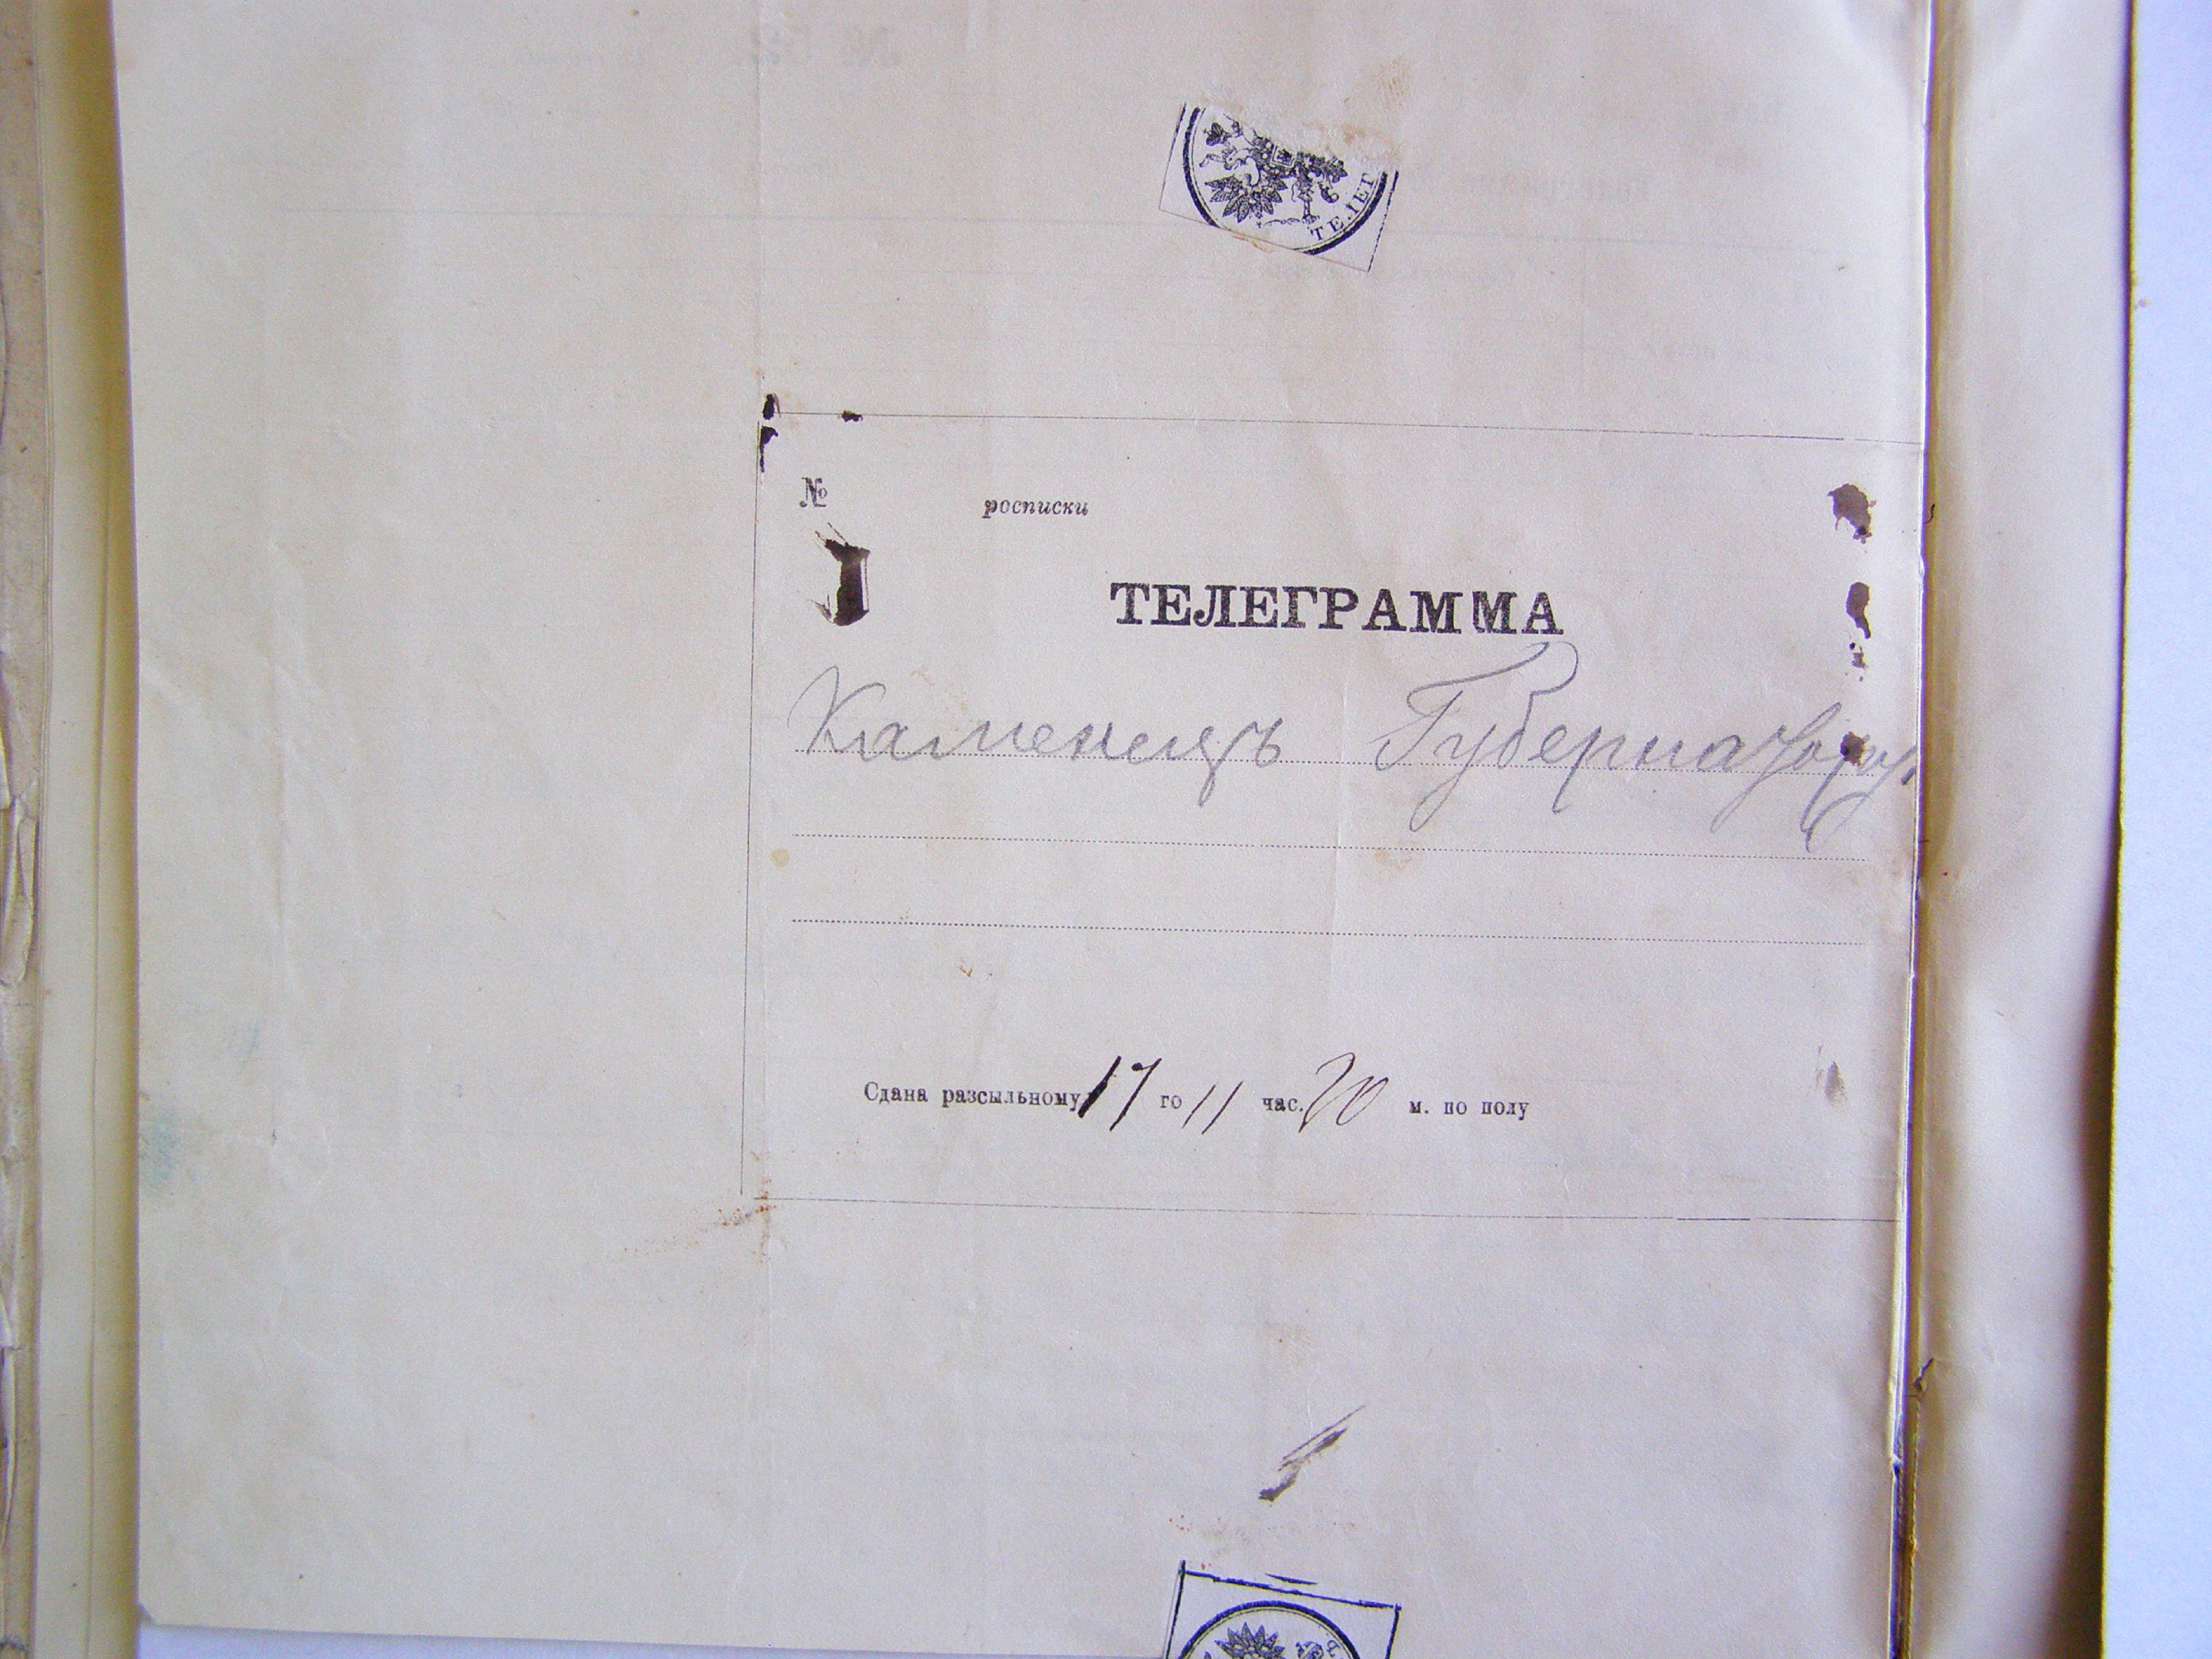 ТЕЛЕГ
№ росписки
ТЕЛЕГРАММА
Каменецъ Губернатору
Сдана разсыльному 17 го 11 час. 20 м. по полу